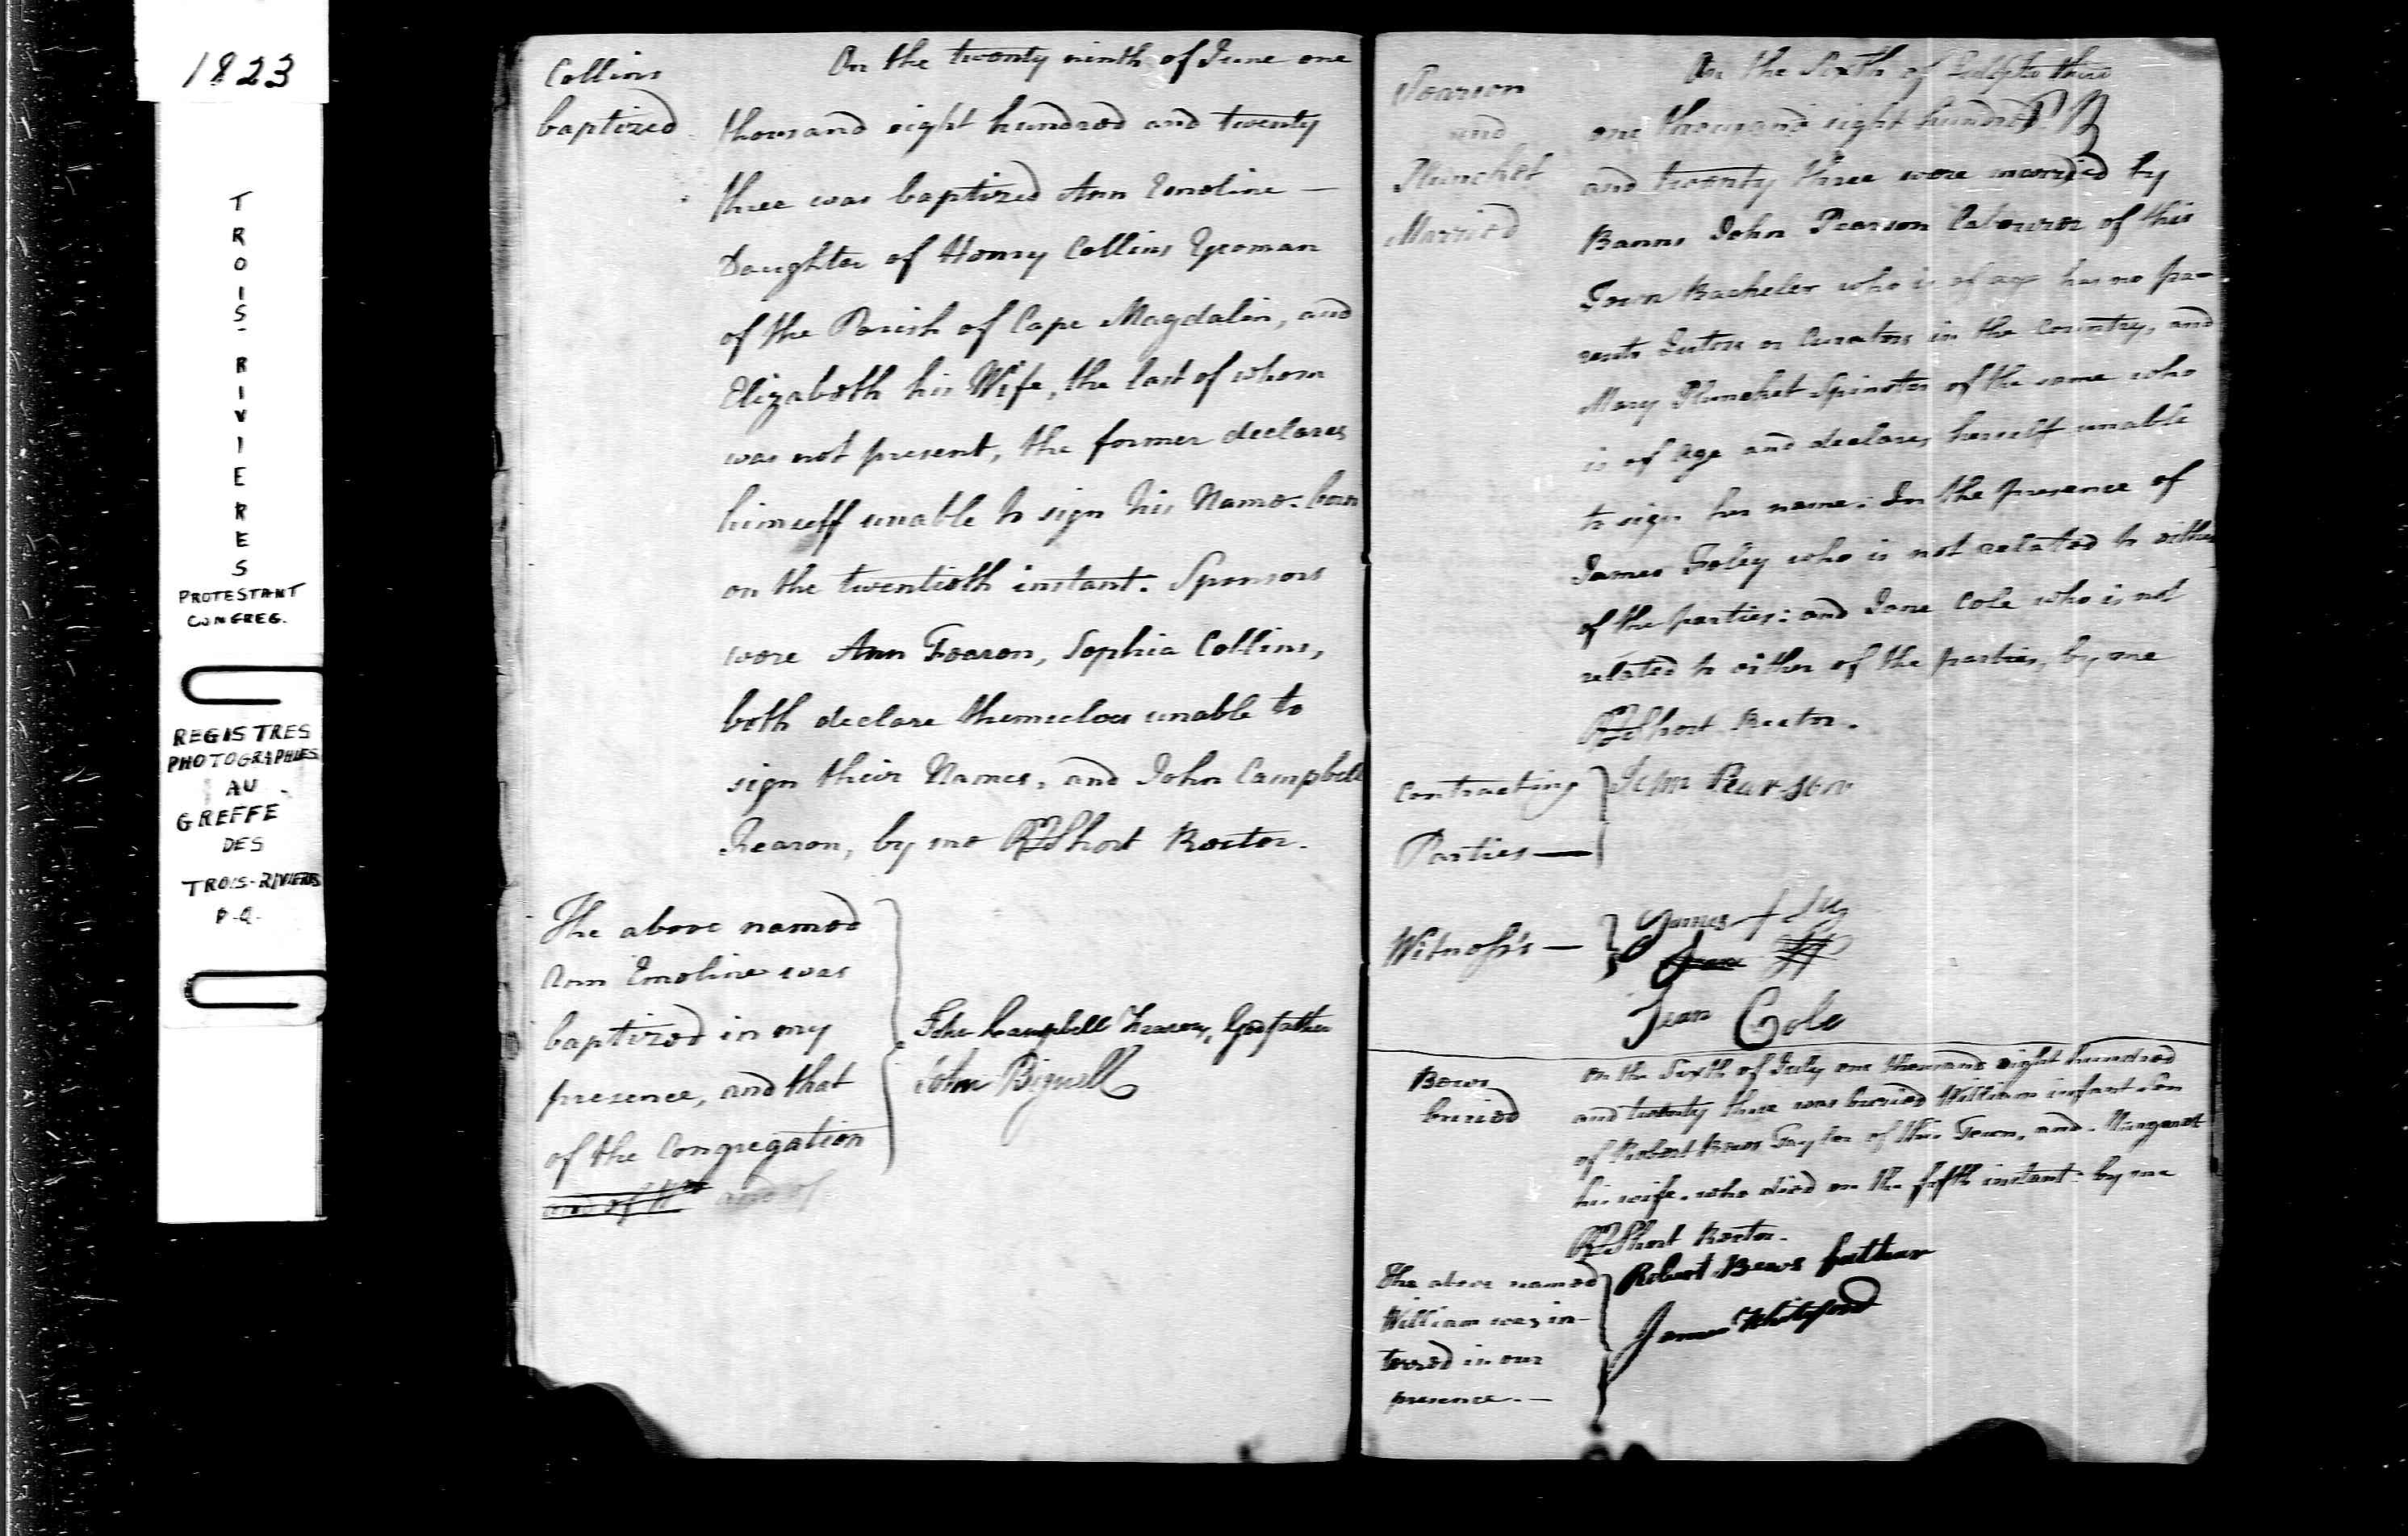 1823
TROIS-RIVIERES
PROTESTANT
CONGREG.
REGISTRES
PHOTOGRAPHIES
AU
GREFFE
DES
TROIS-RIVIERES
P.Q.
Collins
baptized
On the twenty ninth of June one
thousand eight hundred and twenty
three was baptized Ann Emoline —
Daughter of Henry Collins Yeoman
of the Parish of Cape Magdalin, and
Elizabeth his Wife, the last of whom
was not present, the former declares
himself unable to sign his Name: born
on the twentieth instant. Sponsors
were Ann Fearon, Sophia Collins,
both declare themselves unable to
sign their Names, and John Campbell
Fearon, by me RSShort Rector.
The above named
Ann Emoline was
baptized in my
presence, and that
of the Congregation
and of
John Campbell Fearon, Godfather
John Bignell
Pearson
and
Plunchet
Married
On the Sixth of
one thousand eight hundred
and twenty three were married by
Banns John Pearson Labourer of this
Town Bachelor who is of age has no pa-
rents Tutors or Curators in the Country, and
Mary Plunchet Spinster of the same who
is of age and declares herself unable
to sign her name: In the presence of
James Foley who is not related to either
of the parties: and Jane Cole who is not
related to either of the parties, by me
RSShort Rector.
Contracting
Parties —
John Pearson
Witness's —
James
Jean
Jean Cole
Bews
buried
On the Sixth of July one thousand eight hundred
and twenty three was buried William infant Son
of Robert Bews Taylor of this Town, and Margaret
his wife. who died on the fifth instant: by me
RSShort Rector.
The above named
William was in-
terred in our
presence. —
Robert Bews father
James Whiteford